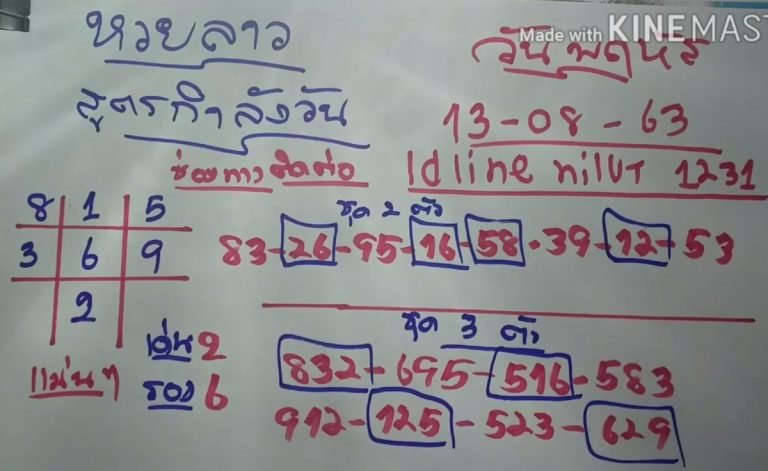 Made with KINEMAST
หวยลาว
วันพฤหัส
สูตรกำลังวัน
13-08-63
ช่องทางติดต่อ
Id line nilut 1231
8 1 5
3 6 9
2
ชุด 2 ตัว
83-26-95-16-58-39-12-53
ชุด 3 ตัว
832-695-516-583
912-125-523-629
เด่น 2
รอง 6
แม่นๆ